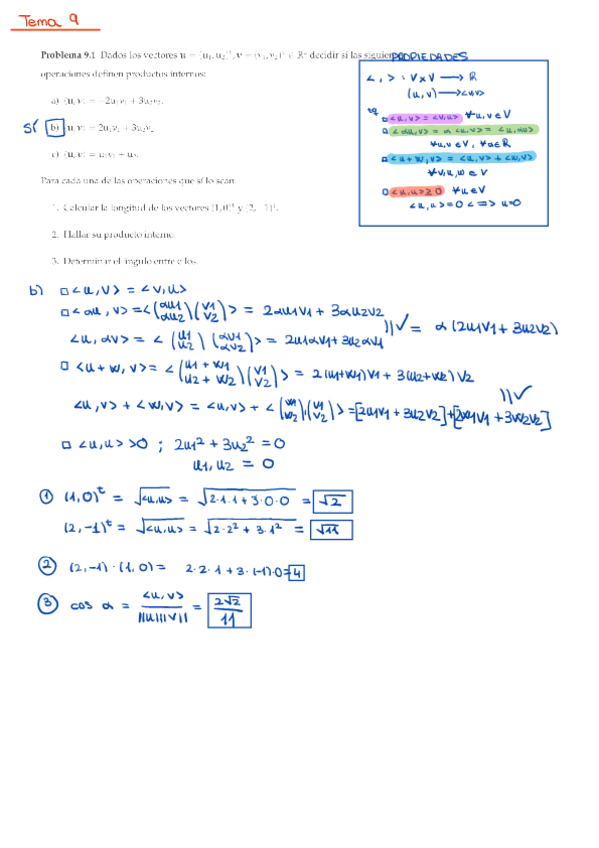 Tema 9
Problema 9.1 Dados los vectores u = (u₁, u₂)ᵗ, v = (v₁, v₂)ᵗ ∈ R² decidir si las siguie
operaciones definen productos internos:
a) ⟨u, v⟩ = −2u₁v₁ + 3u₂v₂.
SÍ b) ⟨u, v⟩ = 2u₁v₁ + 3u₂v₂
c) ⟨u, v⟩ = u₁v₁ + u₂.
Para cada una de las operaciones que sí lo sean:
1. Calcular la longitud de los vectores (1, 0)ᵗ y (2, −1)ᵗ.
2. Hallar su producto interno.
3. Determinar el ángulo entre ellos.
PROPIEDADES
< , > : V x V → R
(u, v) → <u,v>
tq
□ <u,v> = <v,u> ∀u,v ∈ V
□ <αu,v> = α <u,v> = <u,αv>
∀u,v ∈ V, ∀α ∈ R
□ <u+w,v> = <u,v> + <w,v>
∀v,u,w ∈ V
□ <u,u> ≥ 0 ∀u ∈ V
<u,u> = 0 <=> u=0
b) □ <u,v> = <v,u>
□ <αu,v> = <(αu1 αu2)(v1 v2)> = 2αu1v1 + 3αu2v2
// ✓ = α(2u1v1 + 3u2v2)
<u,αv> = <(u1 u2)(αv1 αv2)> = 2u1αv1 + 3u2αv1
□ <u+w,v> = <(u1+w1 u2+w2)(v1 v2)> = 2(u1+w1)v1 + 3(u2+w2)v2
// ✓
<u,v> + <w,v> = <u,v> + <(w1 w2),(v1 v2)> = [2u1v1 + 3u2v2] + [2w1v1 + 3w2v2]
□ <u,u> >0 ; 2u1² + 3u2² = 0
u1, u2 = 0
① (1,0)ᵗ = √<u,u> = √2·1·1 + 3·0·0 = √2
(2,-1)ᵗ = √<u,u> = √2·2² + 3·1² = √11
② (2,-1)·(1,0) = 2·2·1 + 3·(-1)·0 = 4
③ cos α = <u,v> / ||u||||v|| = 2√2 / 11